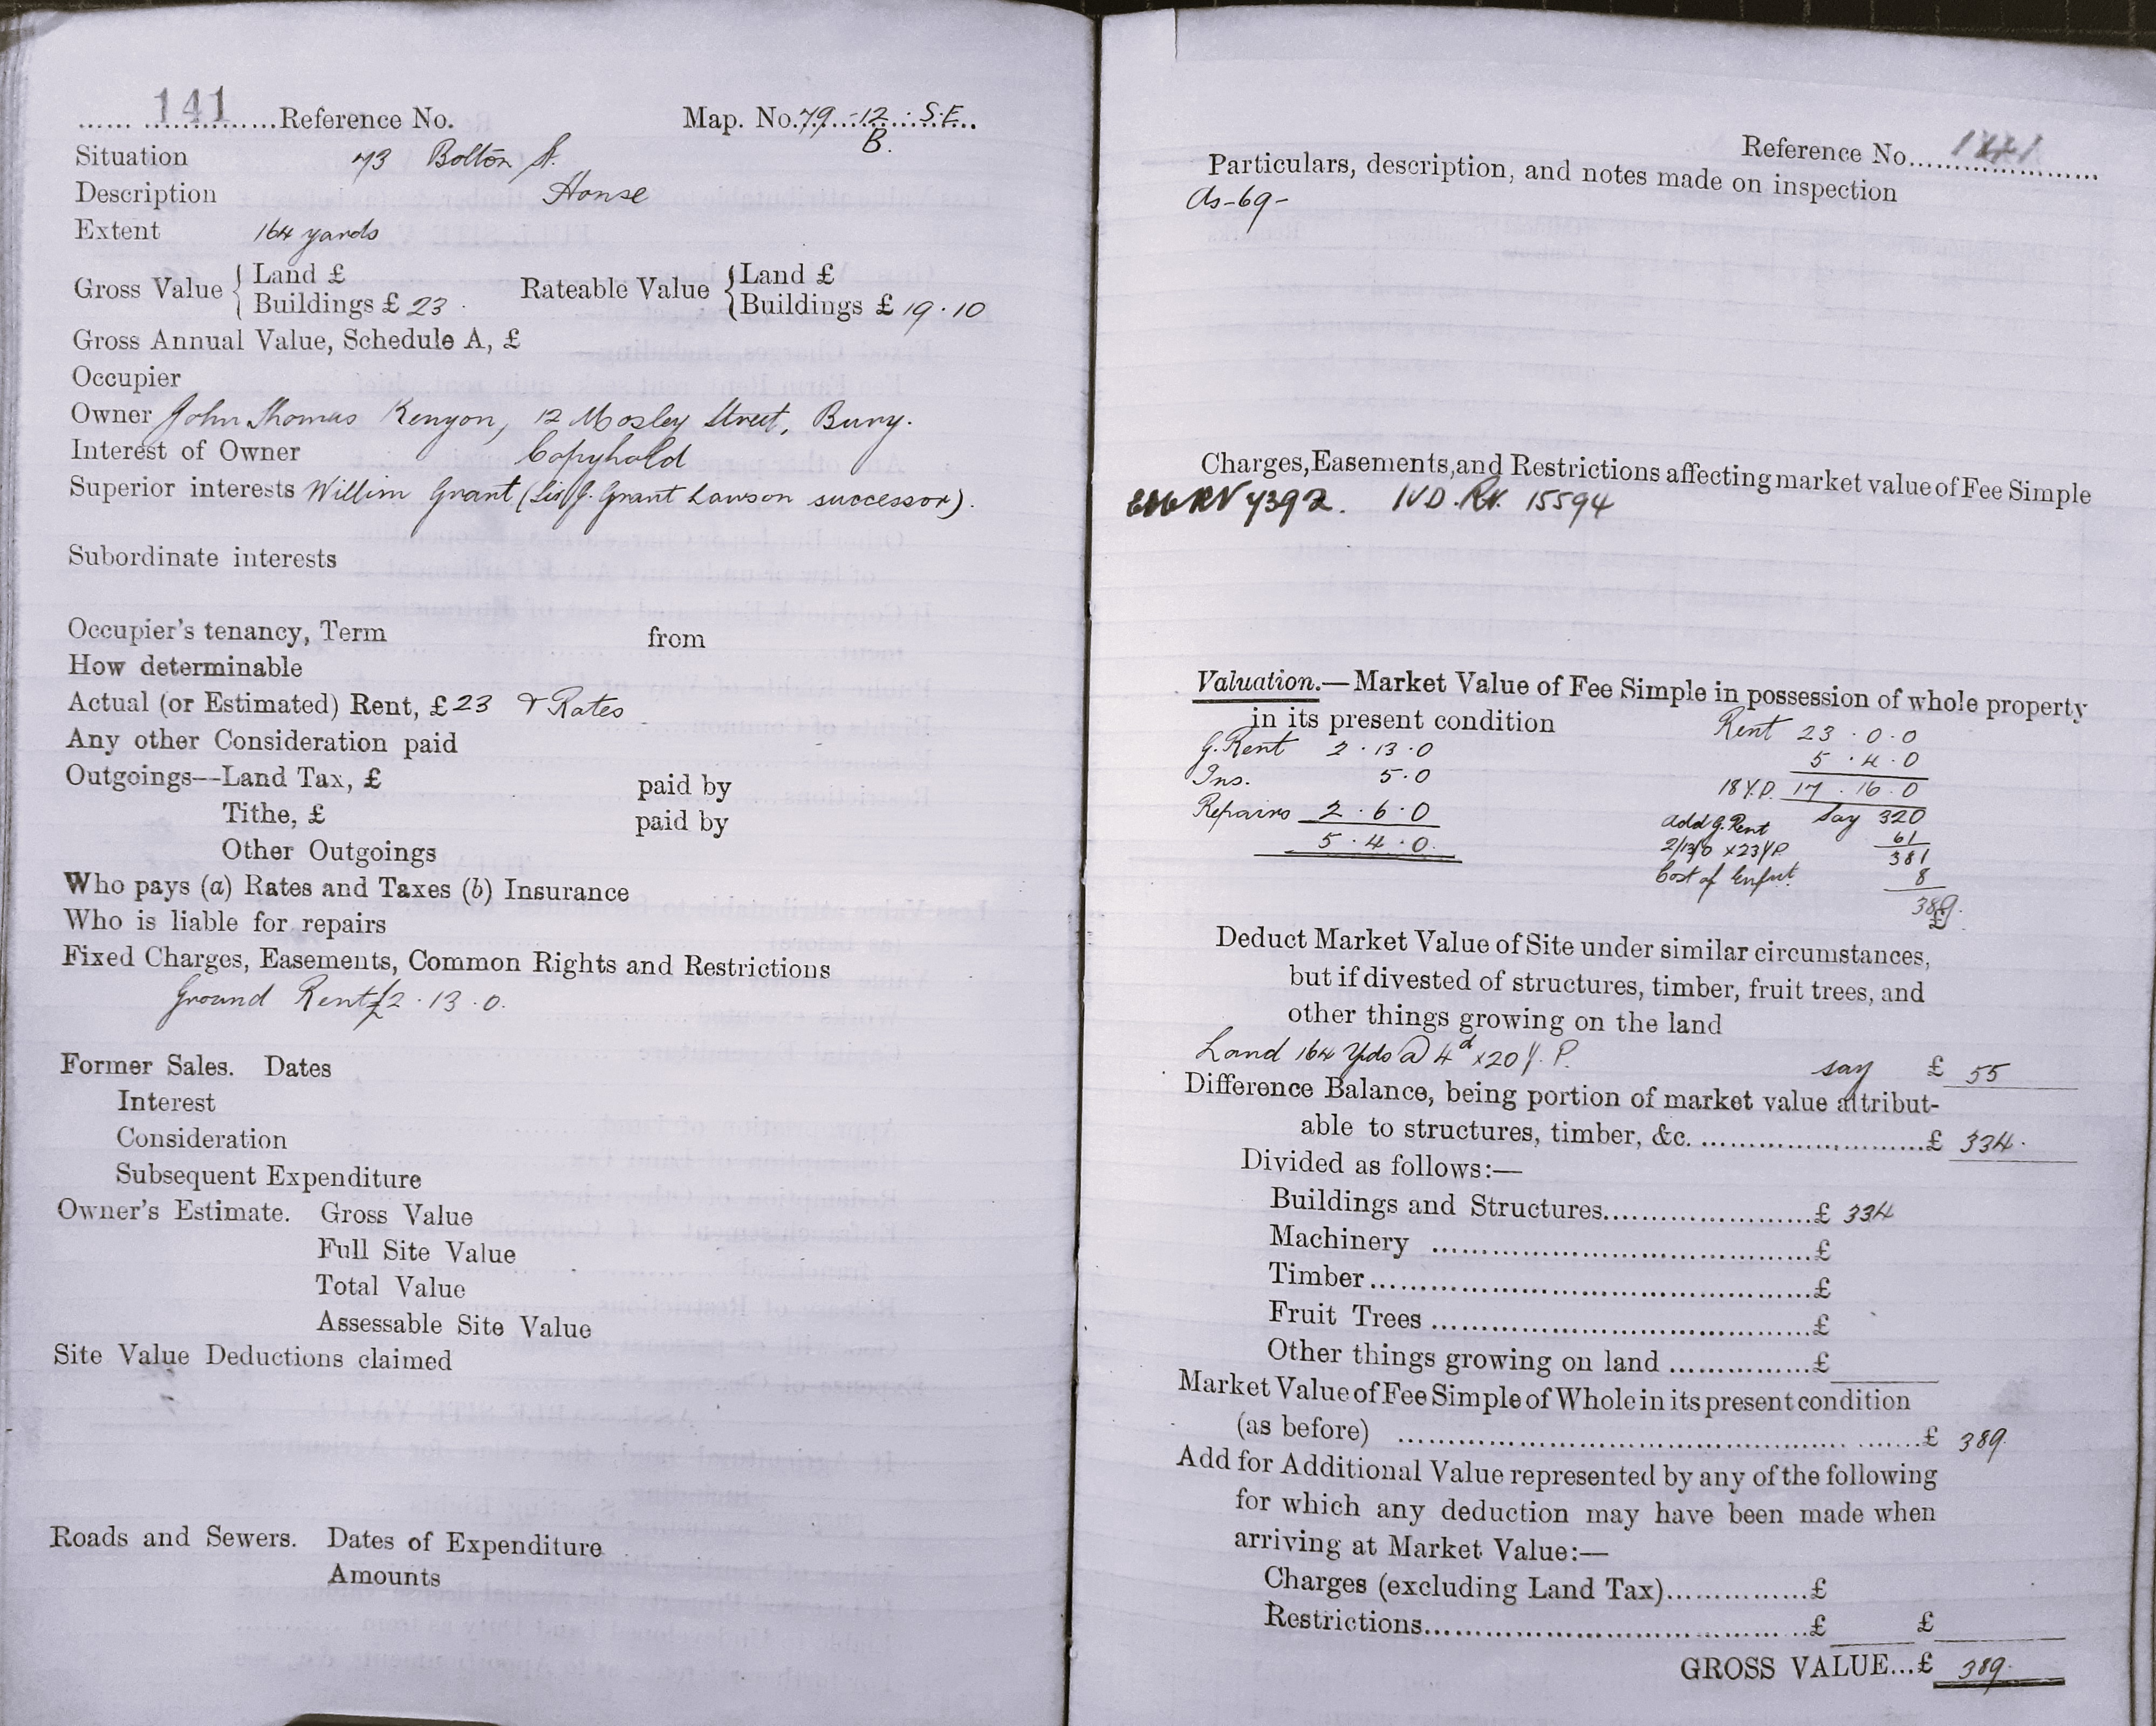 141
...... ...............Reference No.
Map. No. 79 . 12 . S.E.
B.
Situation 73 Bolton St.
Description House
Extent 164 yards
Gross Value { Land £
Buildings £ 23 .
Rateable Value { Land £
Buildings £ 19 . 10
Gross Annual Value, Schedule A, £
Occupier
Owner John Thomas Kenyon, 12 Mosley Street, Bury.
Interest of Owner Copyhold
Superior interests Willim Grant (Sir J. Grant Lawson successor).
Subordinate interests
Occupier's tenancy, Term from
How determinable
Actual (or Estimated) Rent, £ 23 & Rates
Any other Consideration paid
Outgoings—Land Tax, £ paid by
Tithe, £ paid by
Other Outgoings
Who pays (a) Rates and Taxes (b) Insurance
Who is liable for repairs
Fixed Charges, Easements, Common Rights and Restrictions
Ground Rent £2 . 13 . 0.
Former Sales. Dates
Interest
Consideration
Subsequent Expenditure
Owner's Estimate. Gross Value
Full Site Value
Total Value
Assessable Site Value
Site Value Deductions claimed
Roads and Sewers. Dates of Expenditure
Amounts
Reference No. 141
Particulars, description, and notes made on inspection
As - 69 -
Charges, Easements, and Restrictions affecting market value of Fee Simple
RV 7392. IVD. RV. 15594
Valuation.—Market Value of Fee Simple in possession of whole property
in its present condition
G. Rent 2 . 13 . 0
Ins. 5 . 0
Repairs 2 . 6 . 0
5 . 4 . 0.
Rent 23 . 0 . 0
5 . 4 . 0
18 Y.P. 17 . 16 . 0
say 320
Add G. Rent
2/13/0 x 23 Y.P. 61
381
Cost of Enfrt. 8
£389.
Deduct Market Value of Site under similar circumstances,
but if divested of structures, timber, fruit trees, and
other things growing on the land
Land 164 Yds @ 4d x 20 Y. P. say £ 55
Difference Balance, being portion of market value attribut-
able to structures, timber, &c. ........................£ 334.
Divided as follows:—
Buildings and Structures.......................£ 334
Machinery ..........................................£
Timber................................................£
Fruit Trees .........................................£
Other things growing on land ...............£
Market Value of Fee Simple of Whole in its present condition
(as before) ..........................................................£ 389.
Add for Additional Value represented by any of the following
for which any deduction may have been made when
arriving at Market Value:—
Charges (excluding Land Tax)...............£
Restrictions.........................................£ £
GROSS VALUE...£ 389.